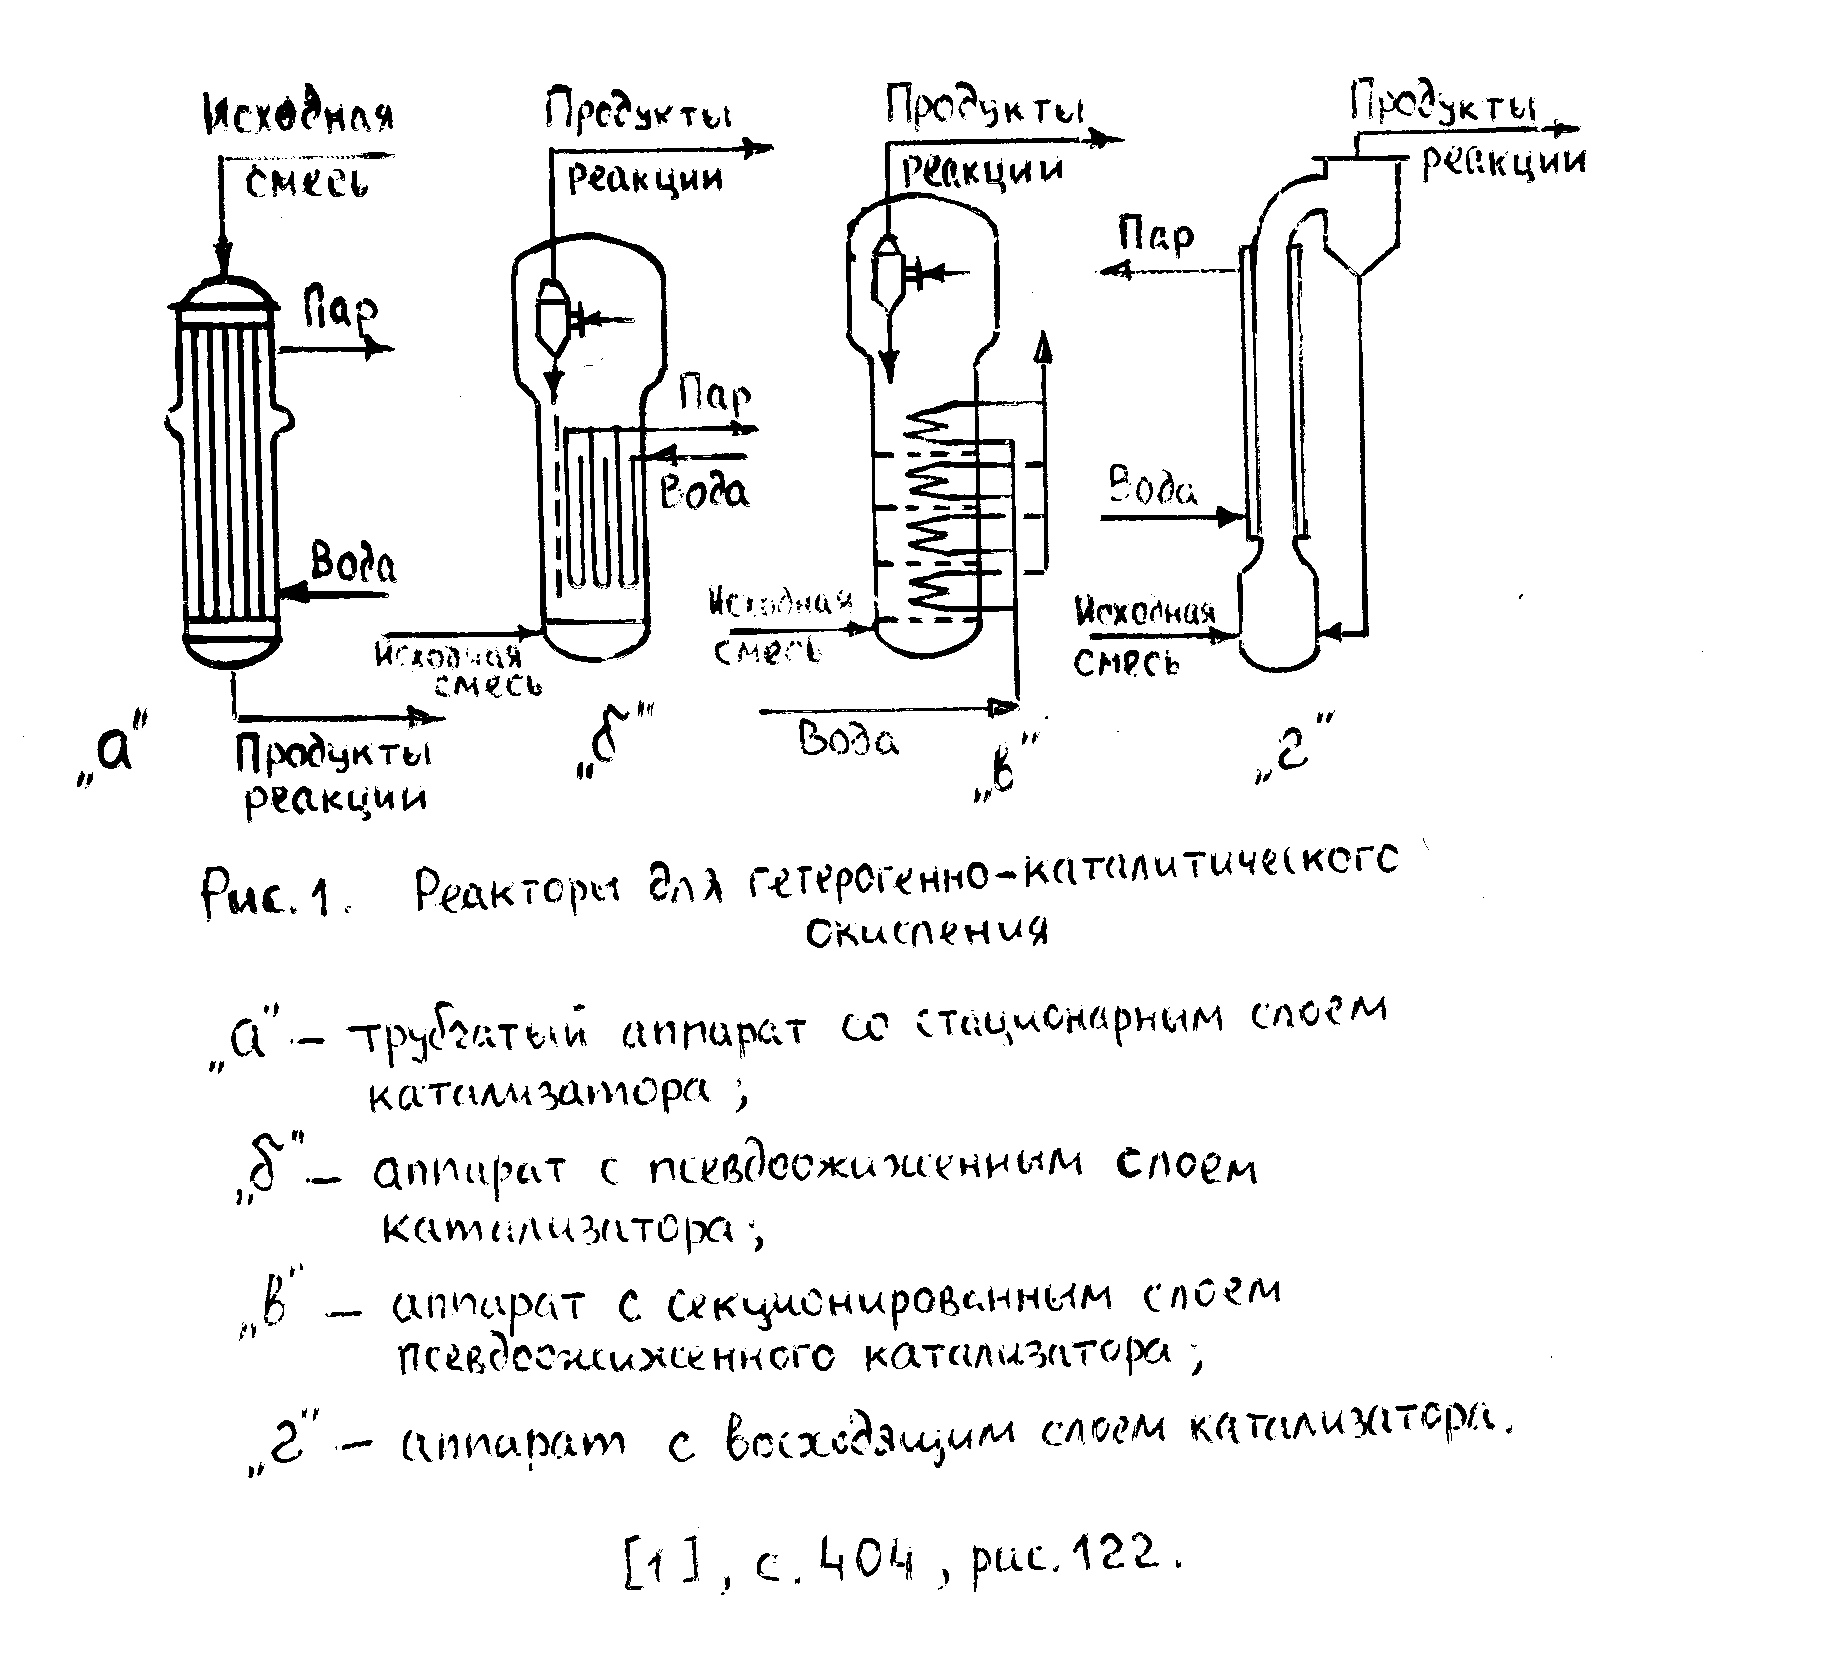 Исходная
смесь
Пар
Вода
Продукты
реакции
„а"
Продукты
реакции
Пар
Вода
Исходная
смесь
„б"
Продукты
реакции
Исходная
смесь
Вода
„в"
Продукты
реакции
Пар
Вода
Исходная
смесь
„г"
Рис. 1. Реакторы для гетерогенно-каталитического
окисления
„а" – трубчатый аппарат со стационарным слоем
катализатора;
„б" – аппарат с псевдоожиженным слоем
катализатора;
„в" – аппарат с секционированным слоем
псевдоожиженного катализатора;
„г" – аппарат с восходящим слоем катализатора.
[1], с. 404, рис. 122.